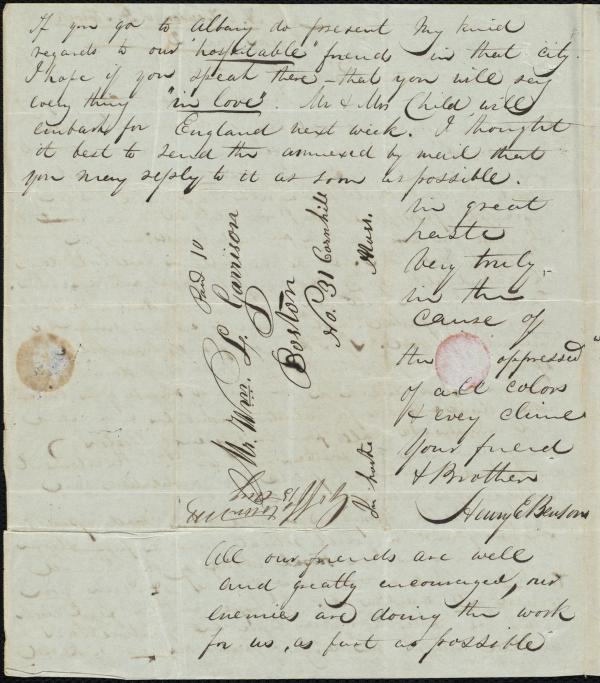 If you go to Albany do present my kind
regards to our "hospitable" friend in that city.
I hope if you speak there - that you will say
every thing "in love". Mr & Mrs Child will
embark for England next week. I thought
it best to send the annexed by mail that
you may reply to it as soon as possible.
in great
haste
Very truly,
in the
cause of
the oppressed
of all colors
& every clime
Your friend
& Brother
Henry E Benson
Paid 10
Mr. Wm. L. Garrison
Boston
No. 31 Cornhill
Mass.
In haste
All our friends are well
and greatly encouraged, our
enemies are doing the work
for us, as fast as possible